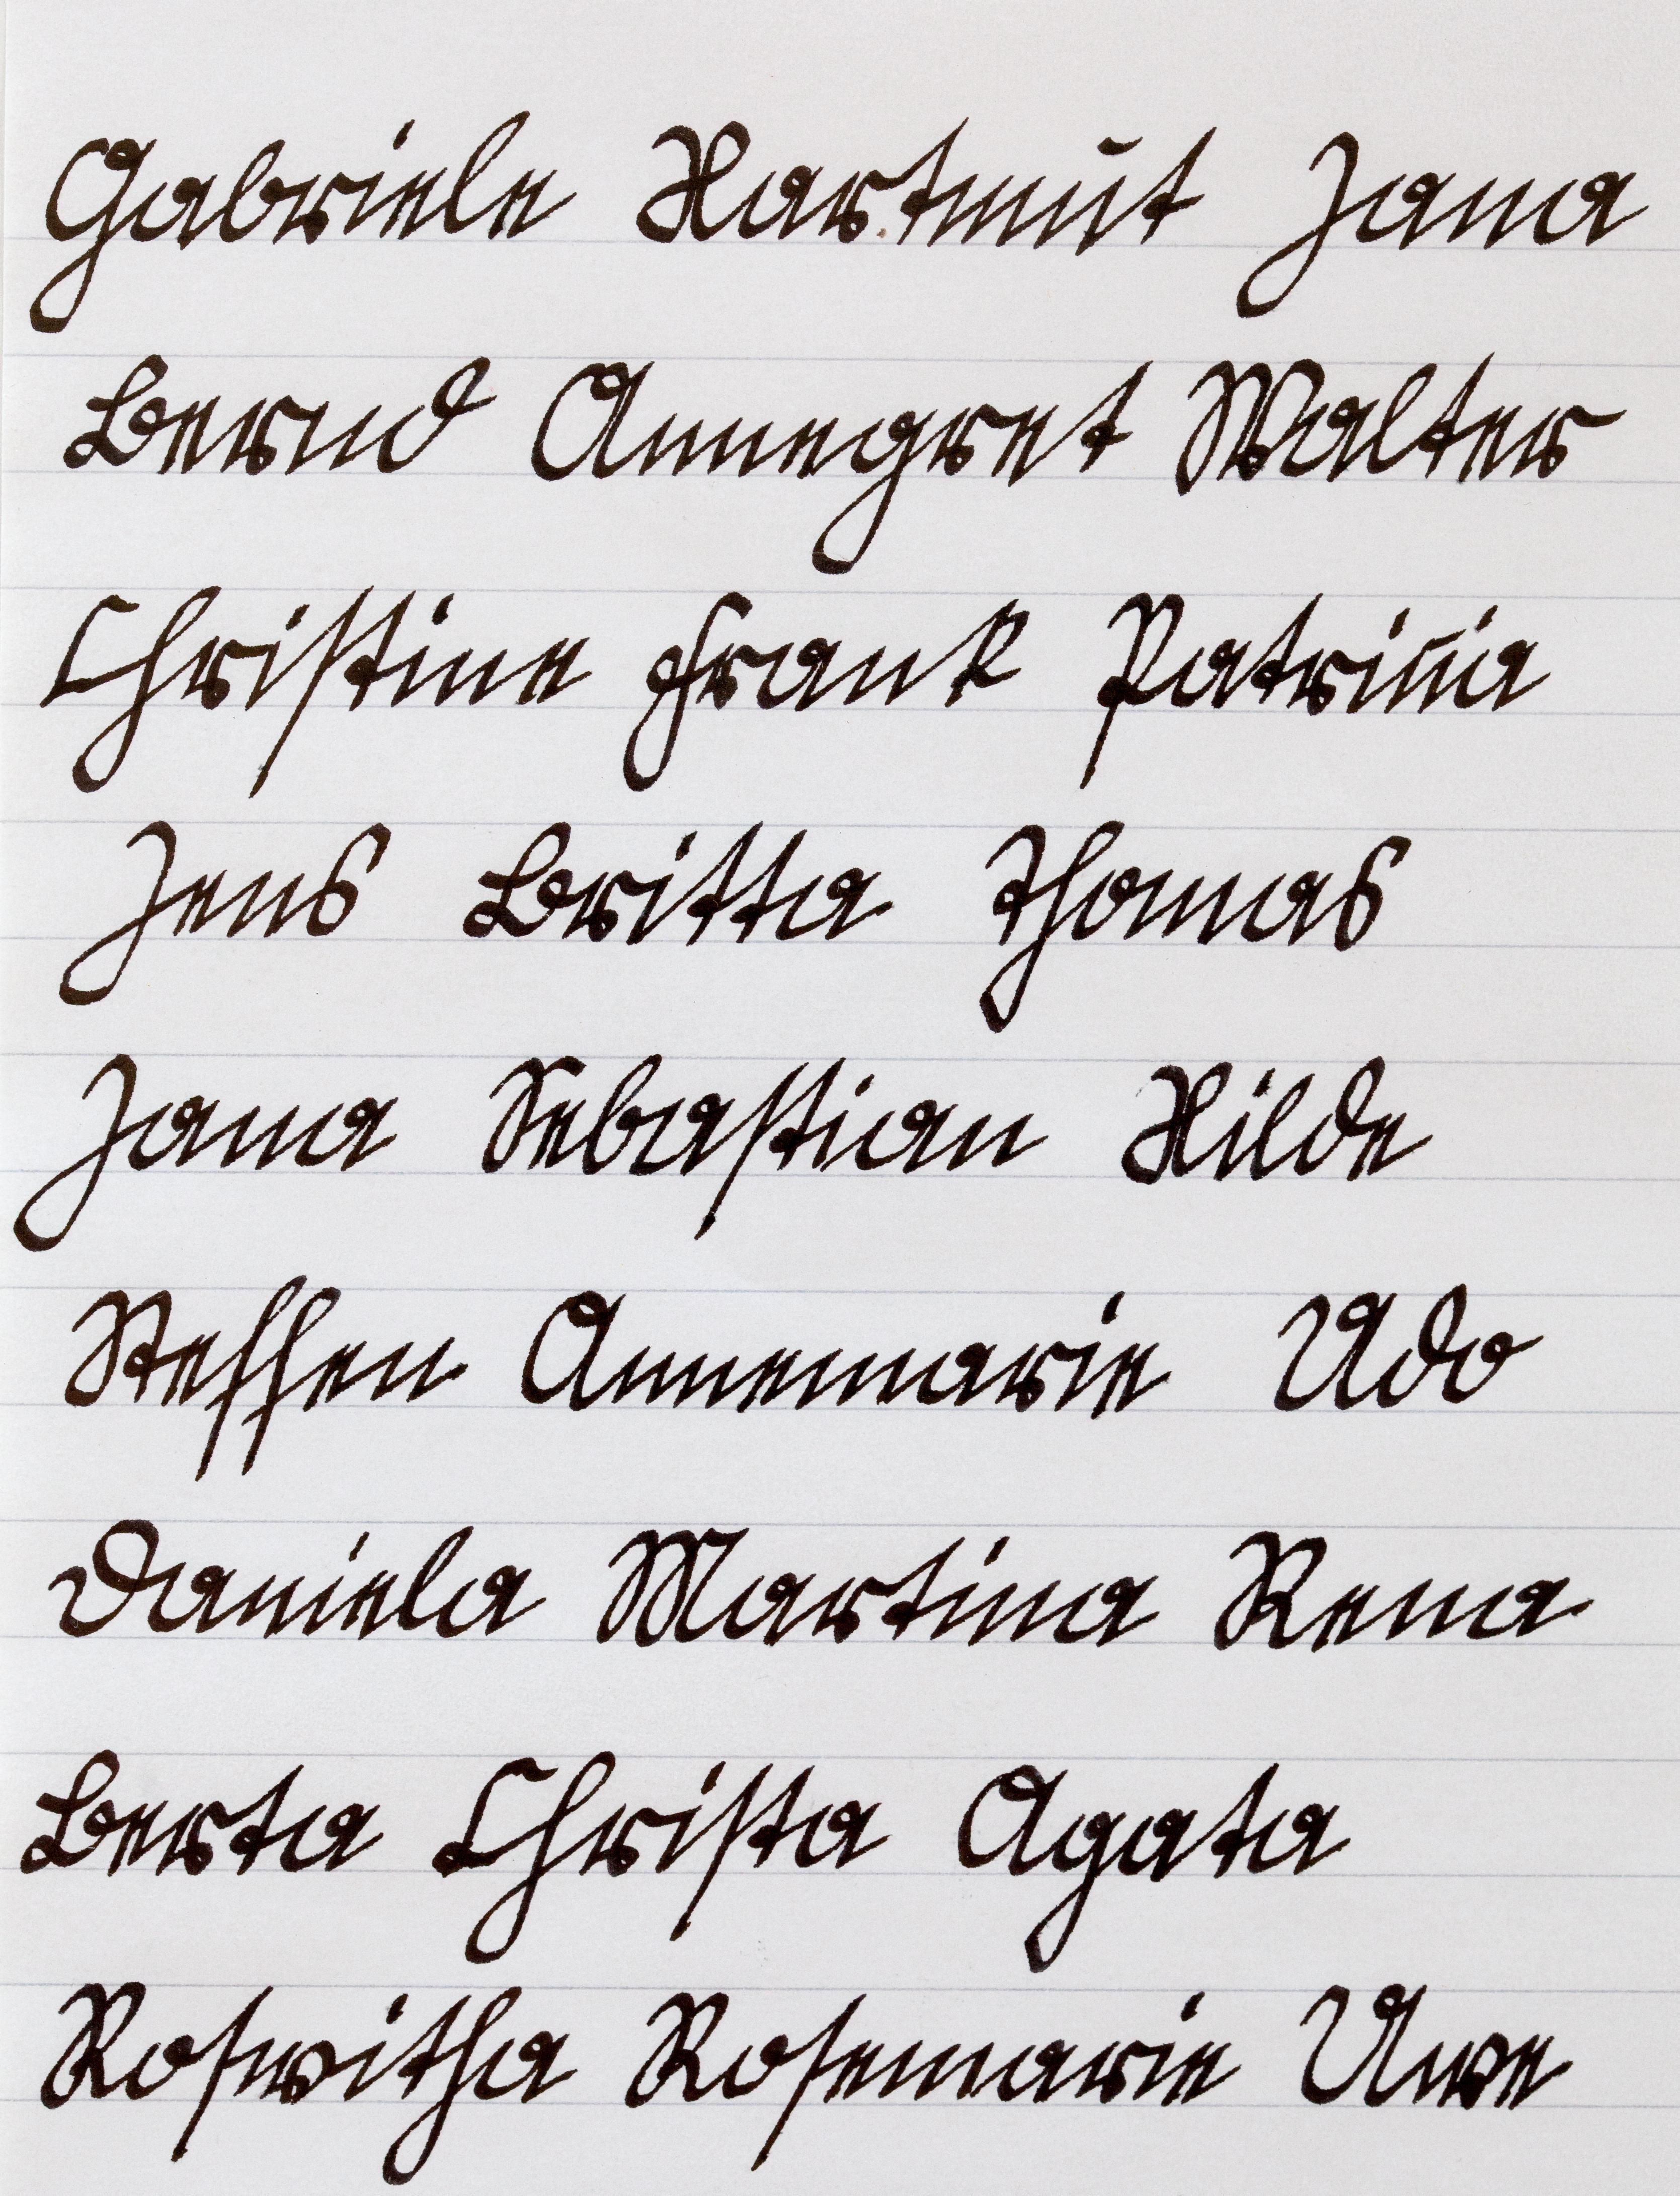 Gabriele Hartmut Jana
Bernd Annegret Walter
Christine Frank Patricia
Jens Britta Thomas
Jana Sebastian Hilde
Steffen Annemarie Udo
Daniela Martina Rena
Berta Christa Agata
Roswitha Rosemarie Uwe